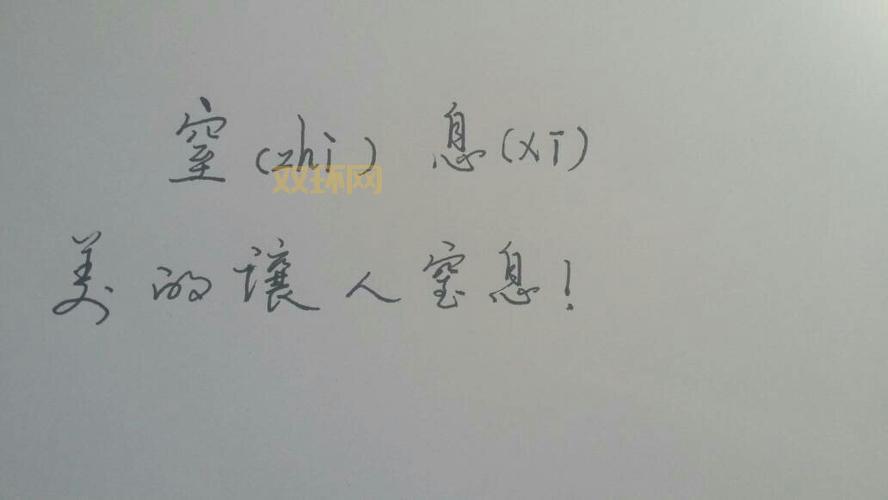 窒(zhi) 息(xī)
双环网
美的讓人窒息!